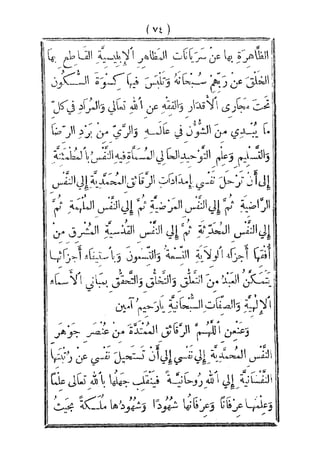 (٧٤)
الظَّاهِرَةِ بِهَا عَنْ سَرَيَانَاتِ المَظَاهِرِ الإِبْلِيسِيَّةِ القَاطِعِ بِهَا
الخَلْقَ عَنْ رَبِّهِمْ سُبْحَانَهُ وَتَلْبَسَ فِيهَا كِسْوَةَ السُّكُونِ
تَحْتَ مَجَارِى الأَقْدَارِ وَالفِقْهِ عَنِ اللهِ تَعَالَى وَالمُرَادِ فِي كُلِّ
مَا يُبْدِي مِنَ الشُّؤُنِ فِي عَالَمِهِ وَالرَّيِّ مِنْ بَرْدِ الرِّضَا
وَالتَّسْلِيمِ وَعِلْمِ التَّوْحِيدِ الحَالِي المُسَمَّاةِ فِيهِ النَّفْسُ بِالمُطْمَئِنَّةِ
إِلَى أَنْ تَرْحَلَ نَفْسِي إِمْدَادَاتِ الرَّقَائِقِ المُحَمَّدِيَّةِ إِلَى النَّفْسِ
الرَّاضِيَةِ ثُمَّ إِلَى النَّفْسِ المَرْضِيَّةِ ثُمَّ إِلَى النَّفْسِ المُلْهَمَةِ ثُمَّ
إِلَى النَّفْسِ المُحَدَّثَةِ ثُمَّ إِلَى النَّفْسِ القُدْسِيَّةِ المُشْرِقِ مِنْ
أُفُقِهَا أَجْزَاءُ الوِلَايَةِ التِّسْعَةُ وَالتِّسْعُونَ وَبِاسْتِيفَاءِ أَجْزَائِهَا
يَتَمَكَّنُ العَبْدُ مِنَ التَّعَلُّقِ وَالتَّخَلُّقِ وَالتَّحَقُّقِ بِمَبَانِي الأَسْمَاءِ
الإِلَهِيَّةِ وَالصِّفَاتِ السُّبْحَانِيَّةِ يَارَحِيمُ آمِين
وَعَنْعِنِ اللَّهُمَّ الرَّقَائِقَ المُمْتَدَّةَ مِنْ عُنْصُرِ جَوْهَرِ
النَّفْسِ المُحَمَّدِيَّةِ إِلَى نَفْسِي إِلَى أَنْ تَسْتَحِيلَ نَفْسِي عَنْ رُتْبَتِهَا
النَّفْسَانِيَّةِ إِلَى اللهِ رُوحَانِيَّةً فَيَنْقَلِبُ جَهْلُهَا بِاللهِ تَعَالَى عِلْمًا
وَعِلْمُهَا عِرْفَانًا وَعِرْفَانُهَا شُهُودًا وَشُهُودُهَا مَلَكَةً بِحَيْثُ